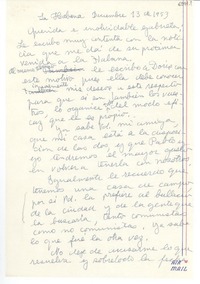 La Habana Diciembre 13 de 1953
Querida e inolvidable Gabriela:
Le escribo muy contenta con la noticia
que me dió de su próxima
venida a La Habana.
le escribo a Doris con
este motivo pues ella debe conocer
mis deseos a este respecto
para que si son también los vuestros
lo organice del modo
que le es propio.
Ya sabe Vd. mi amiga,
que mi casa está a la disposición
de las dos y que Pablo
y yo tendremos el mayor gusto
en volverla tenerla con nosotros
Igualmente le recuerdo que
tenemos una casa de campo
por si Vd. la prefiere al bullicio
de la ciudad y de la gente que
la buscaría tanto comunistas
como no comunistas. Ya sabe
lo que fué la otra vez.
No deje de avisarme lo que
resuelva y sobretodo la
AIR
MAIL